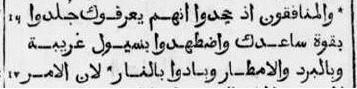 * والمنافقون اذ جحدوا انهم يعرفوك جلدوا ١٦
بقوة ساعدك واضطهدوا بسيول غريبة
وبالبرد والامطار وبادوا بالنار* لان الامر ١٧